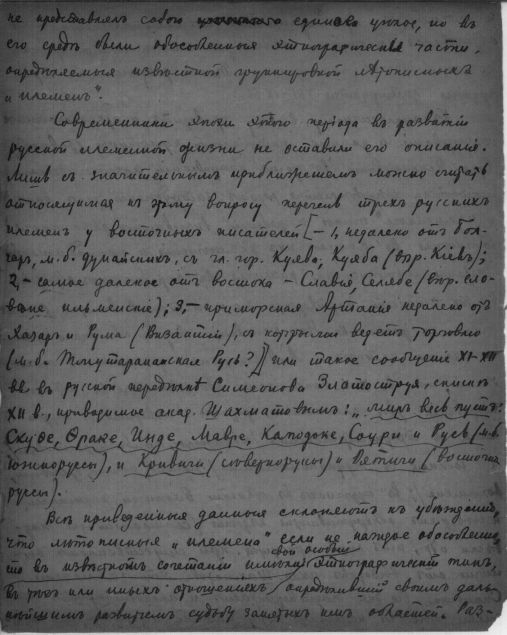 не представлялъ собою единое цѣлое, но въ
его средѣ были обособленныя этнографическія части,
опредѣляемыя извѣстной группировкой лѣтописныхъ
племенъ".
Современники эпохи этого періода въ развитіи
русской племенной жизни не оставили его описанія.
Лишь съ значительнымъ приближеніемъ можно считать
относящимся къ этому вопросу перечень трехъ русскихъ
племенъ у восточныхъ писателей [– 1, недалеко отъ Бол-
гаръ, м.б. дунайскихъ, съ гл. гор. Куева, Куяба (впр. Кіевъ);
2,– самое далекое отъ востока – Славія, Селябе (впр. сло-
вене ильменскіе); 3,– приморская Артанія недалеко отъ
Хазаръ и Рума (Византіи), съ которыми ведетъ торговлю
(м.б. Тмутараканская Русь?)] или такое сообщеніе XI-XII
вв въ русской передѣлкѣ Симеонова Златоструя, списокъ
XII в., приводимое акад. Шахматовымъ: „миръ весь пустъ:
Скуѳе, Ѳраке, Инде, Мавре, Каподоке, Соури и Русь (м.б.
южноруссы), и Кривичи (сѣверноруссы) и Вятичи (восточно
руссы).
Всѣ приведенныя данныя склоняютъ къ убѣжденію,
что лѣтописныя „племена" если не каждое обособленно,
то въ извѣстномъ сочетаніи имѣли свой особый этнографическій типъ,
въ тѣхъ или иныхъ отношеніяхъ опредѣлившій своимъ даль-
нѣйшимъ развитіемъ судьбу занятыхъ имъ областей. Раз-